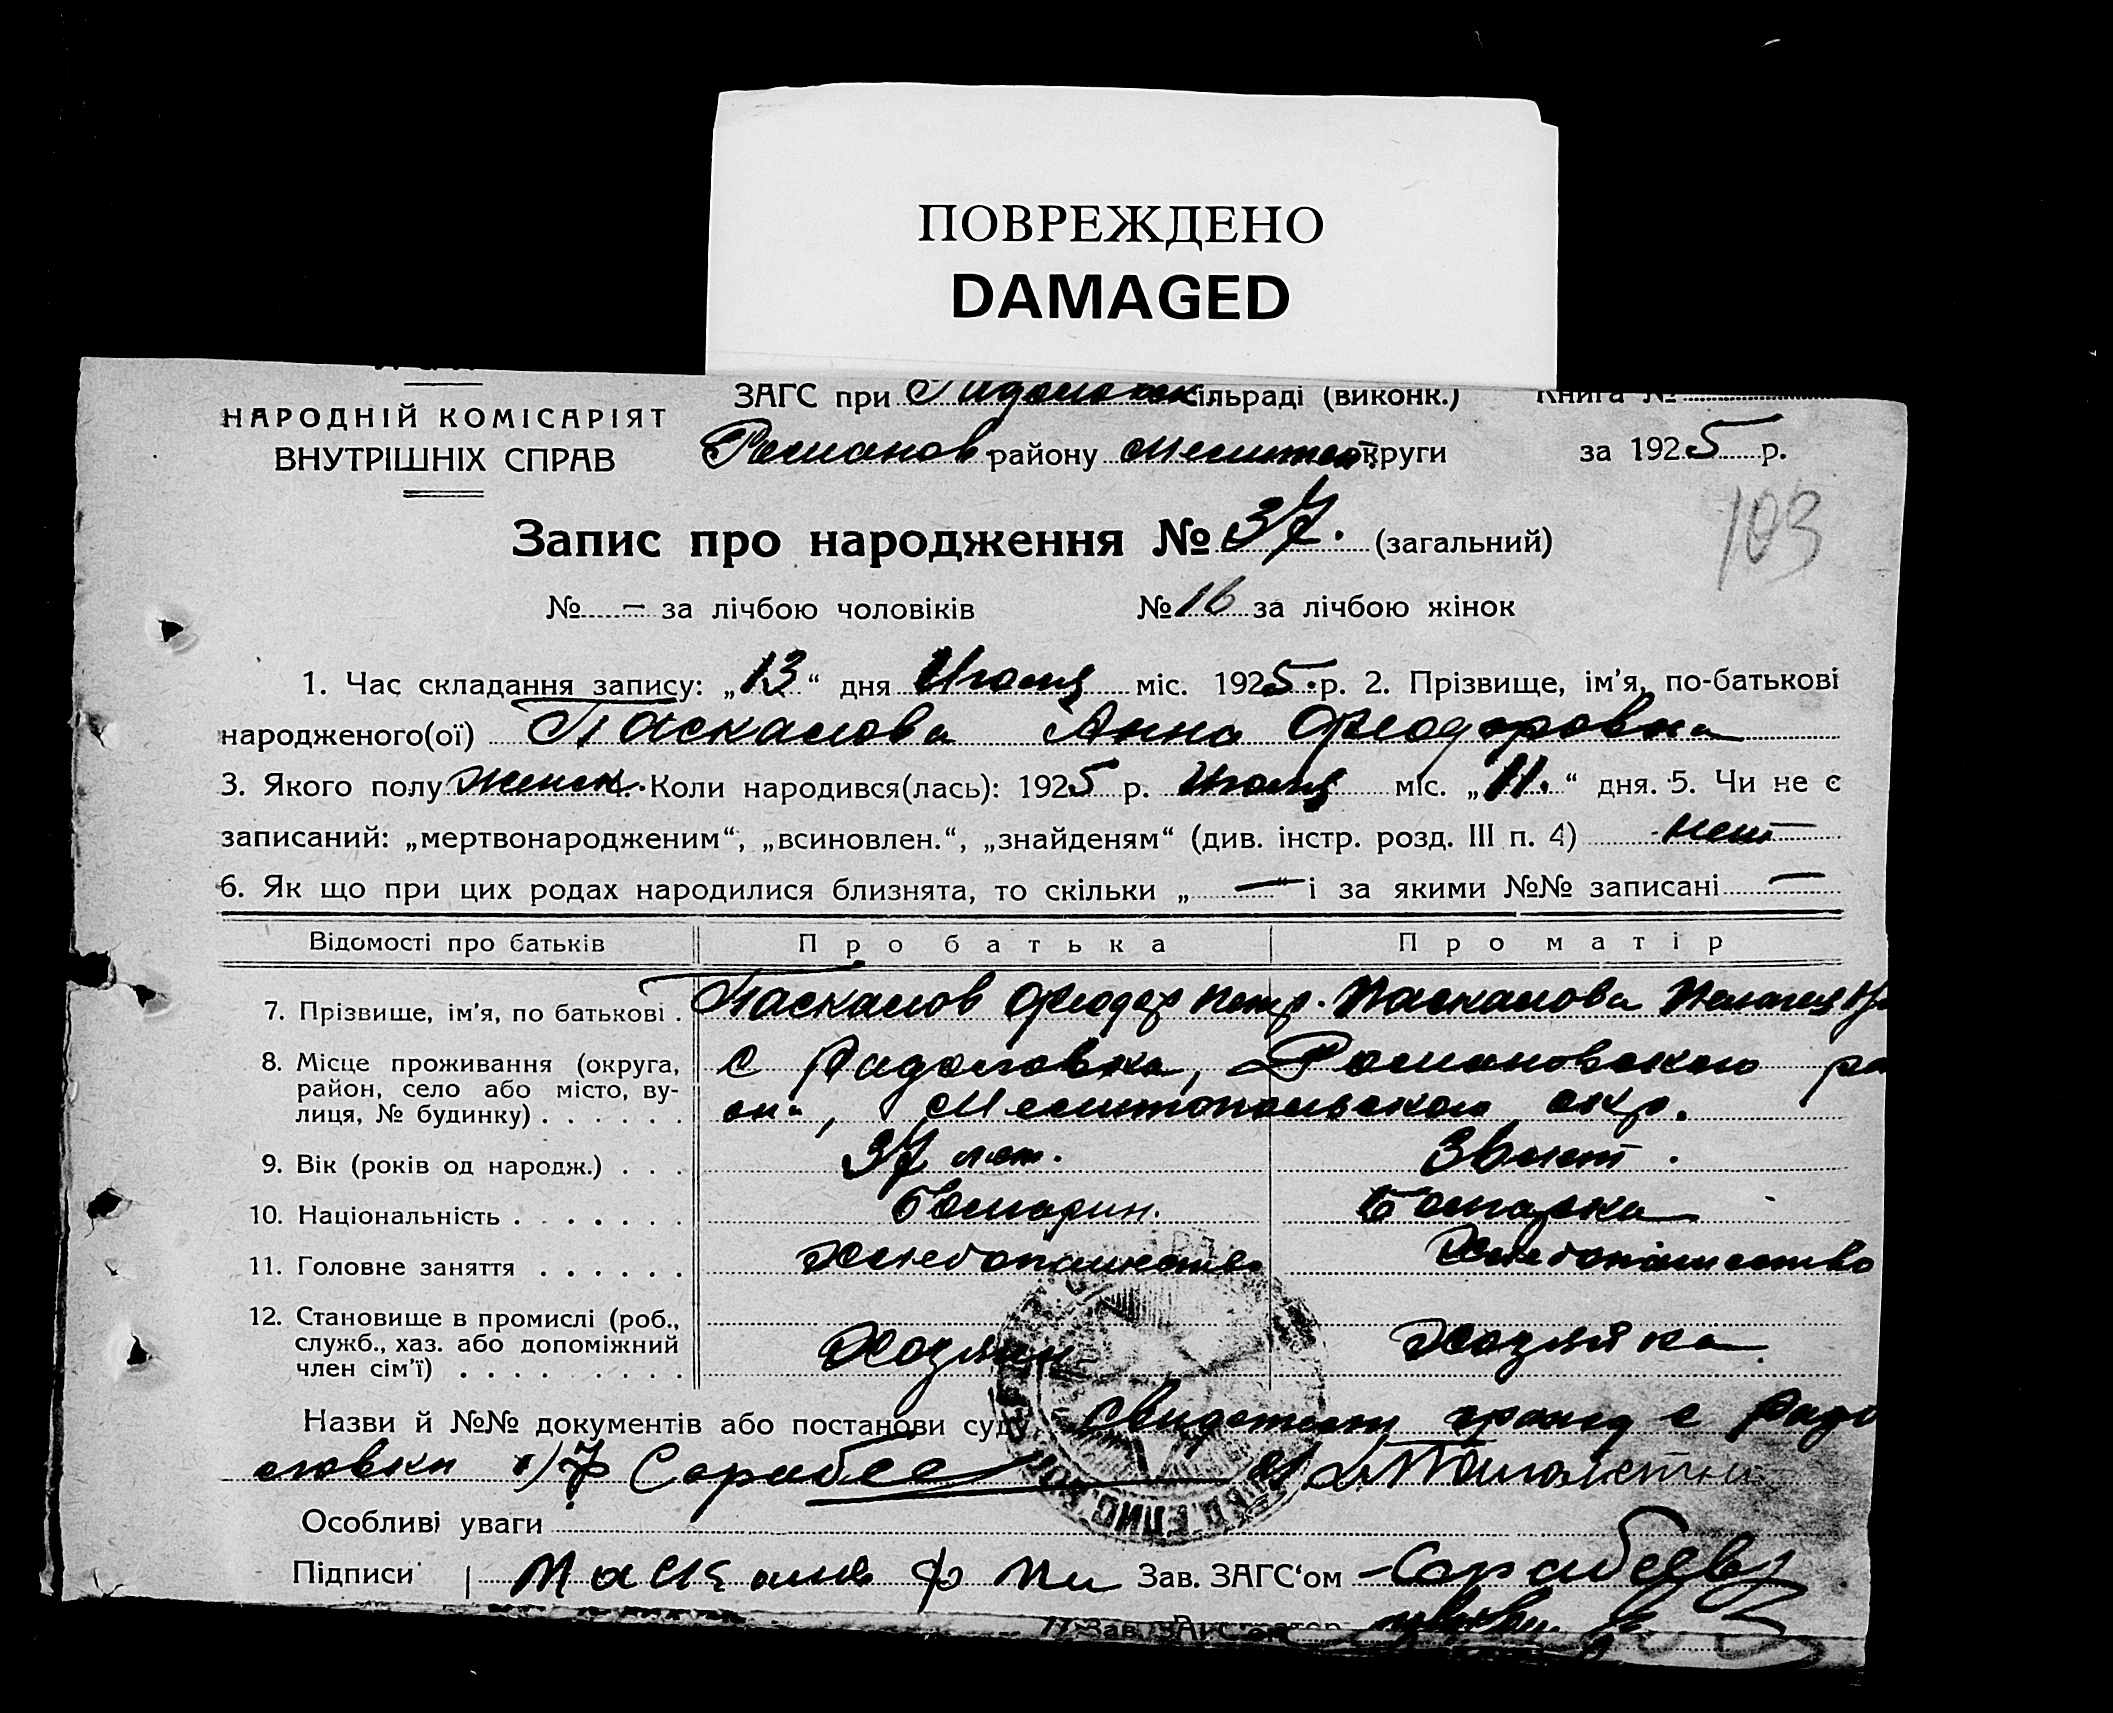 ПОВРЕЖДЕНО
DAMAGED
НАРОДНІЙ КОМІСАРІЯТ
ВНУТРІШНІХ СПРАВ
ЗАГС при сільраді (виконк.) Книга №
Романов району Мелитоп. округи за 1925 р.
103
Запис про народження № 37. (загальний)
№ — за лічбою чоловіків № 16 за лічбою жінок
1. Час складання запису: „13“ дня Июля міс. 1925 р. 2. Прізвище, ім’я, по-батькові
народженого(ої) Паскалова Анна Феодоровна
3. Якого полу женск. Коли народився(лась): 1925 р. Июля міс. „11.“ дня. 5. Чи не є
записаний: „мертвонародженим“, „всиновлен.“, „знайденям“ (див. інстр. розд. III п. 4) нет
6. Як що при цих родах народилися близнята, то скільки „—“ і за якими №№ записані —
Відомості про батьків Про батька Про матір
7. Прізвище, ім’я, по батькові . Паскалов Феодор Петр. Паскалова Пелагея
8. Місце проживання (округа, с Радоловка, Романовского ра
район, село або місто, ву-
лиця, № будинку) . . . . . . она, Мелитопольского окр.
9. Вік (років од народж.) . . . 37 лет. 36 лет.
10. Національність . . . . . . . Болгарин. Болгарка
11. Головне заняття . . . . . . Хлебопашество Хлебопашество
12. Становище в промислі (роб.,
служб., хаз. або допоміжний Хозяин Хозяйка
член сім’ї) . . . . . . . . .
Назви й №№ документів або постанови суду гражд с Радо
ловки 1) Ф Сарабее
Особливі уваги
Підписи Паскалов Ф Зав. ЗАГС‘ом Сарабеев